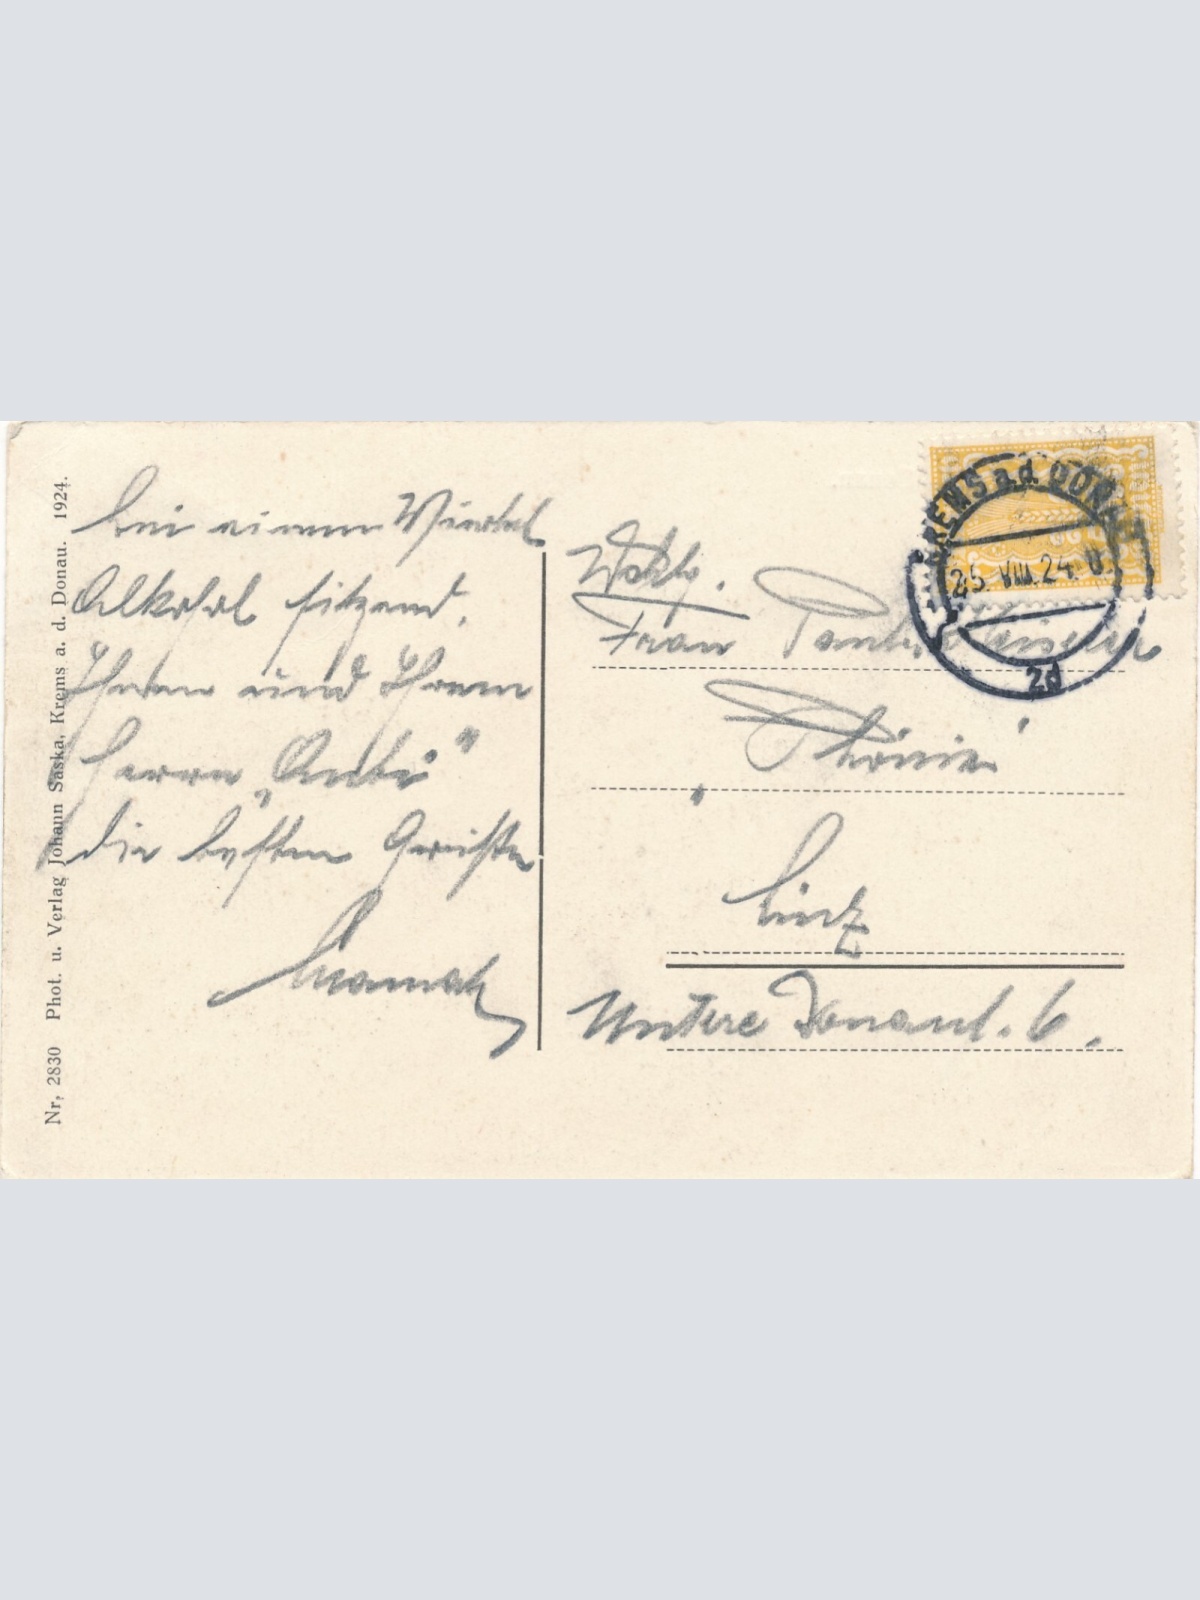 Nr. 2830 Phot. u. Verlag Johann Saska, Krems a. d. Donau. 1924.
bei einem Viertel
Alkohol sitzend,
Ihnen und Ihrem
Herrn „Anti"
die besten Grüße
KREMS a.d. DONAU
25. VIII. 24
2d
Frau
„Phönix"
Linz
Untere Donaul. 6.